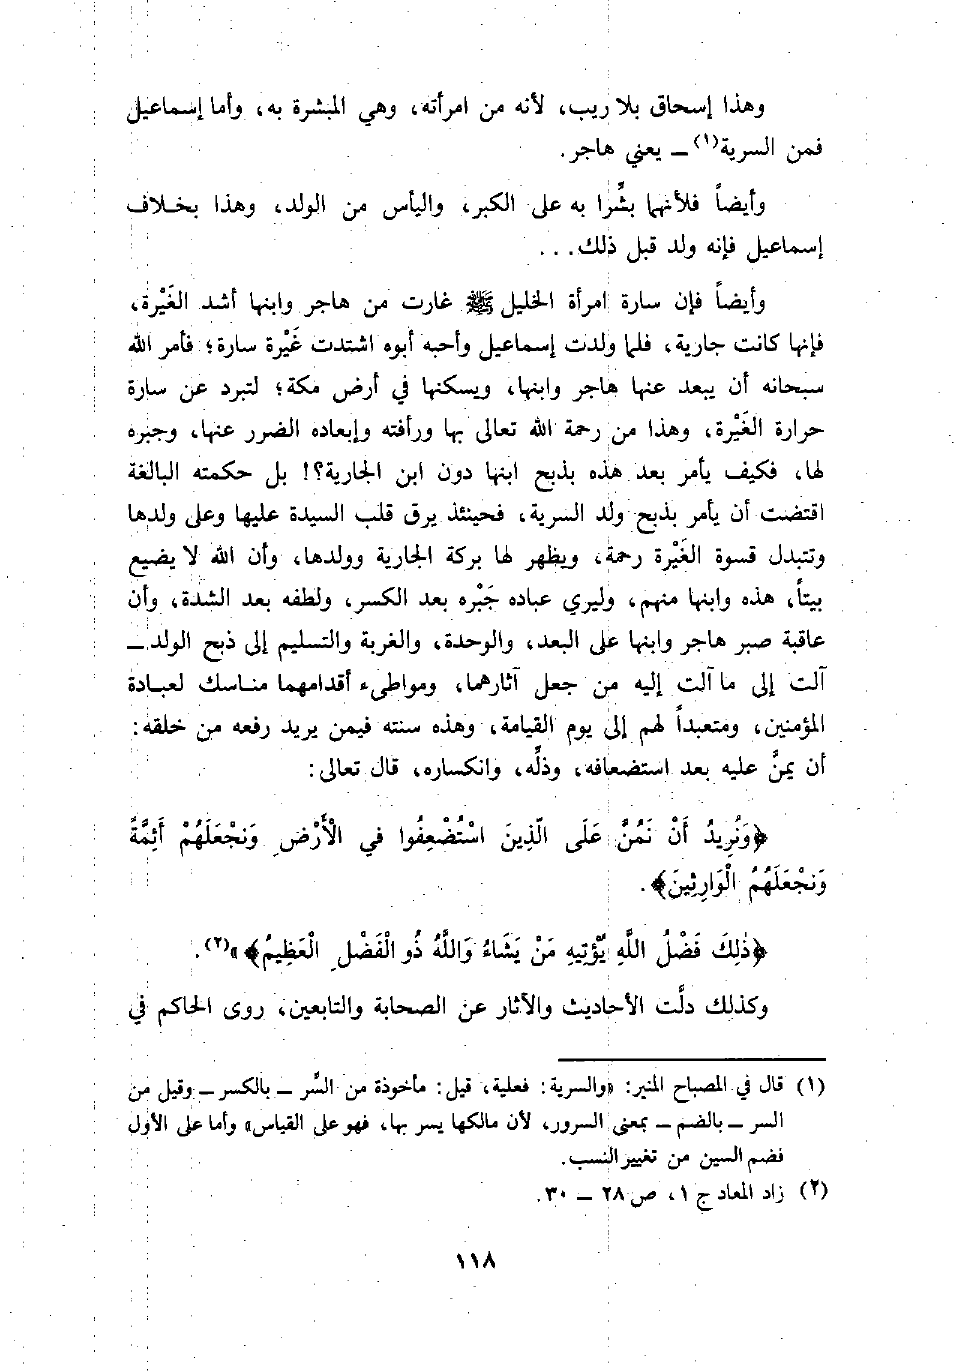 وهذا إسحاق بلا ريب، لأنه من امرأته، وهي المبشرة به، وأما إسماعيل
فمن السرية(١) ــ يعني هاجر.
وأيضاً فلأنهما بشِّرا به على الكبر، واليأس من الولد، وهذا بخلاف
إسماعيل فإنه ولد قبل ذلك. . .
وأيضاً فإن سارة امرأة الخليل ﷺ غارت من هاجر وابنها أشد الغَيْرة،
فإنها كانت جارية، فلما ولدت إسماعيل وأحبه أبوه اشتدت غَيْرة سارة؛ فأمر الله
سبحانه أن يبعد عنها هاجر وابنها، ويسكنها في أرض مكة؛ لتبرد عن سارة
حرارة الغَيْرة، وهذا من رحمة الله تعالى بها ورأفته وإبعاده الضرر عنها، وجبره
لها، فكيف يأمر بعد هذه بذبح ابنها دون ابن الجارية؟! بل حكمته البالغة
اقتضت أن يأمر بذبح ولد السرية، فحينئذ يرق قلب السيدة عليها وعلى ولدها
وتتبدل قسوة الغَيْرة رحمة، ويظهر لها بركة الجارية وولدها، وأن الله لا يضيع
بيتاً، هذه وابنها منهم، وليري عباده جَبْره بعد الكسر، ولطفه بعد الشدة، وأن
عاقبة صبر هاجر وابنها على البعد، والوحدة، والغربة والتسليم إلى ذبح الولد ــ
آلت إلى ما آلت إليه من جعل آثارهما، ومواطىء أقدامهما مناسك لعبادة
المؤمنين، ومتعبداً لهم إلى يوم القيامة، وهذه سنته فيمن يريد رفعه من خلقه:
أن يمنَّ عليه بعد استضعافه، وذلِّه، وانكساره، قال تعالى:
﴿وَنُرِيدُ أَنْ نَمُنَّ عَلَى الَّذِينَ اسْتُضْعِفُوا في الْأَرْضِ وَنَجْعَلَهُمْ أَئِمَّةً
وَنَجْعَلَهُمُ الْوَارِثِينَ﴾.
﴿ذٰلِكَ فَضْلُ اللَّهِ يُؤْتِيهِ مَنْ يَشَاءُ وَاللَّهُ ذُو الْفَضْلِ الْعَظِيمُ﴾»(٢).
وكذلك دلَّت الأحاديث والآثار عن الصحابة والتابعين، روى الحاكم في
(١) قال في المصباح المنير: «والسرية: فعلية، قيل: مأخوذة من السِّر ــ بالكسر ــ وقيل من
السر ــ بالضم ــ بمعنى السرور، لأن مالكها يسر بها، فهو على القياس» وأما على الأول
فضم السين من تغيير النسب.
(٢) زاد المعاد ج ١، ص ٢٨ ــ ٣٠.
١١٨